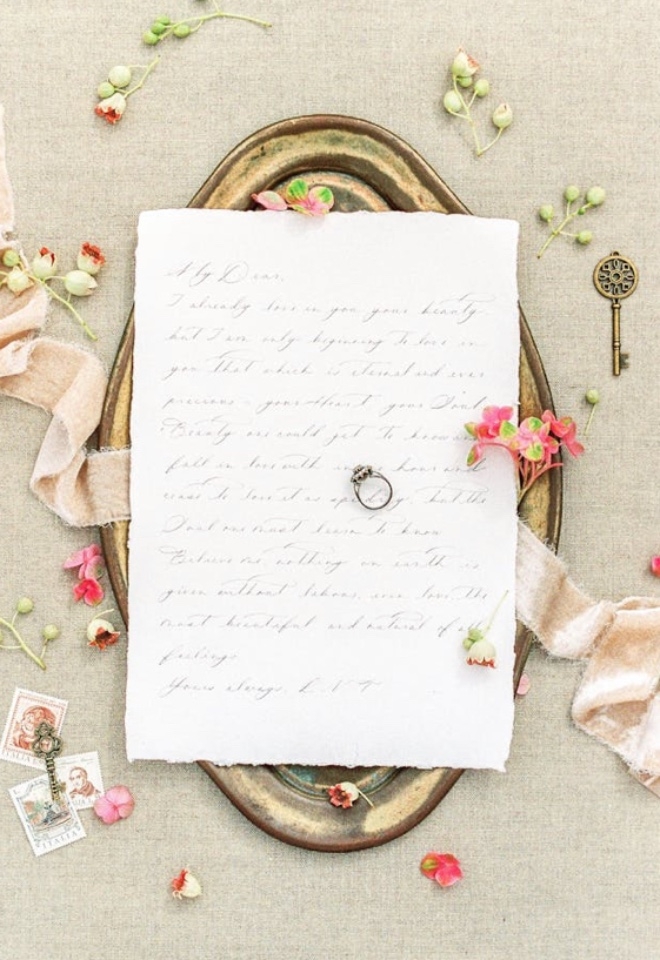 My Dear,
I already love in you your beauty,
but I am only beginning to love in
you that which is eternal and ever
precious - your Heart, your Soul.
Beauty one could get to know and
fall in love with in one hour and
cease to love it as speedily; but the
Soul one must learn to know.
Believe me, nothing on earth is
given without labour, even love, the
most beautiful and natural of all
feelings
Yours always, L N T
ITALIA
ITALIA